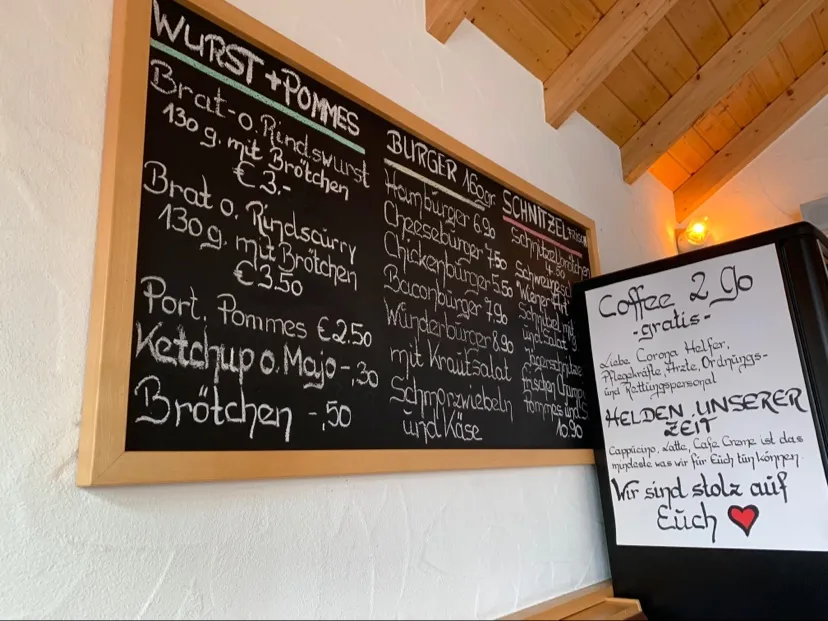 WURST + POMMES
Brat-o. Rindswurst
130 g. mit Brötchen
€ 3.-
Brat o. Rindscurry
130 g. mit Brötchen
€ 3.50
Port. Pommes € 2.50
Ketchup o. Mayo -,30
Brötchen -,50
BURGER 160gr.
Hamburger 6.90
Cheeseburger 7.50
Chickenburger 5.50
Baconburger 7.90
Wünderbürger 8.90
mit Krautsalat
Schmorzwiebeln
und Käse
SCHNITZEL
Schnitzelbrötchen
4.50
"Wiener Art"
Schnitzel mit
und Salat
Jägerschnitzel
frischen
Pommes und S
10.90
Coffee 2 Go
-gratis-
Liebe Corona Helfer,
Pflegekräfte, Ärzte, Ordnungs-
und Rettungspersonal
HELDEN UNSERER
ZEIT
Cappucino, Latte, Cafe Creme ist das
mindeste was wir für Euch tun können.
Wir sind stolz auf
Euch